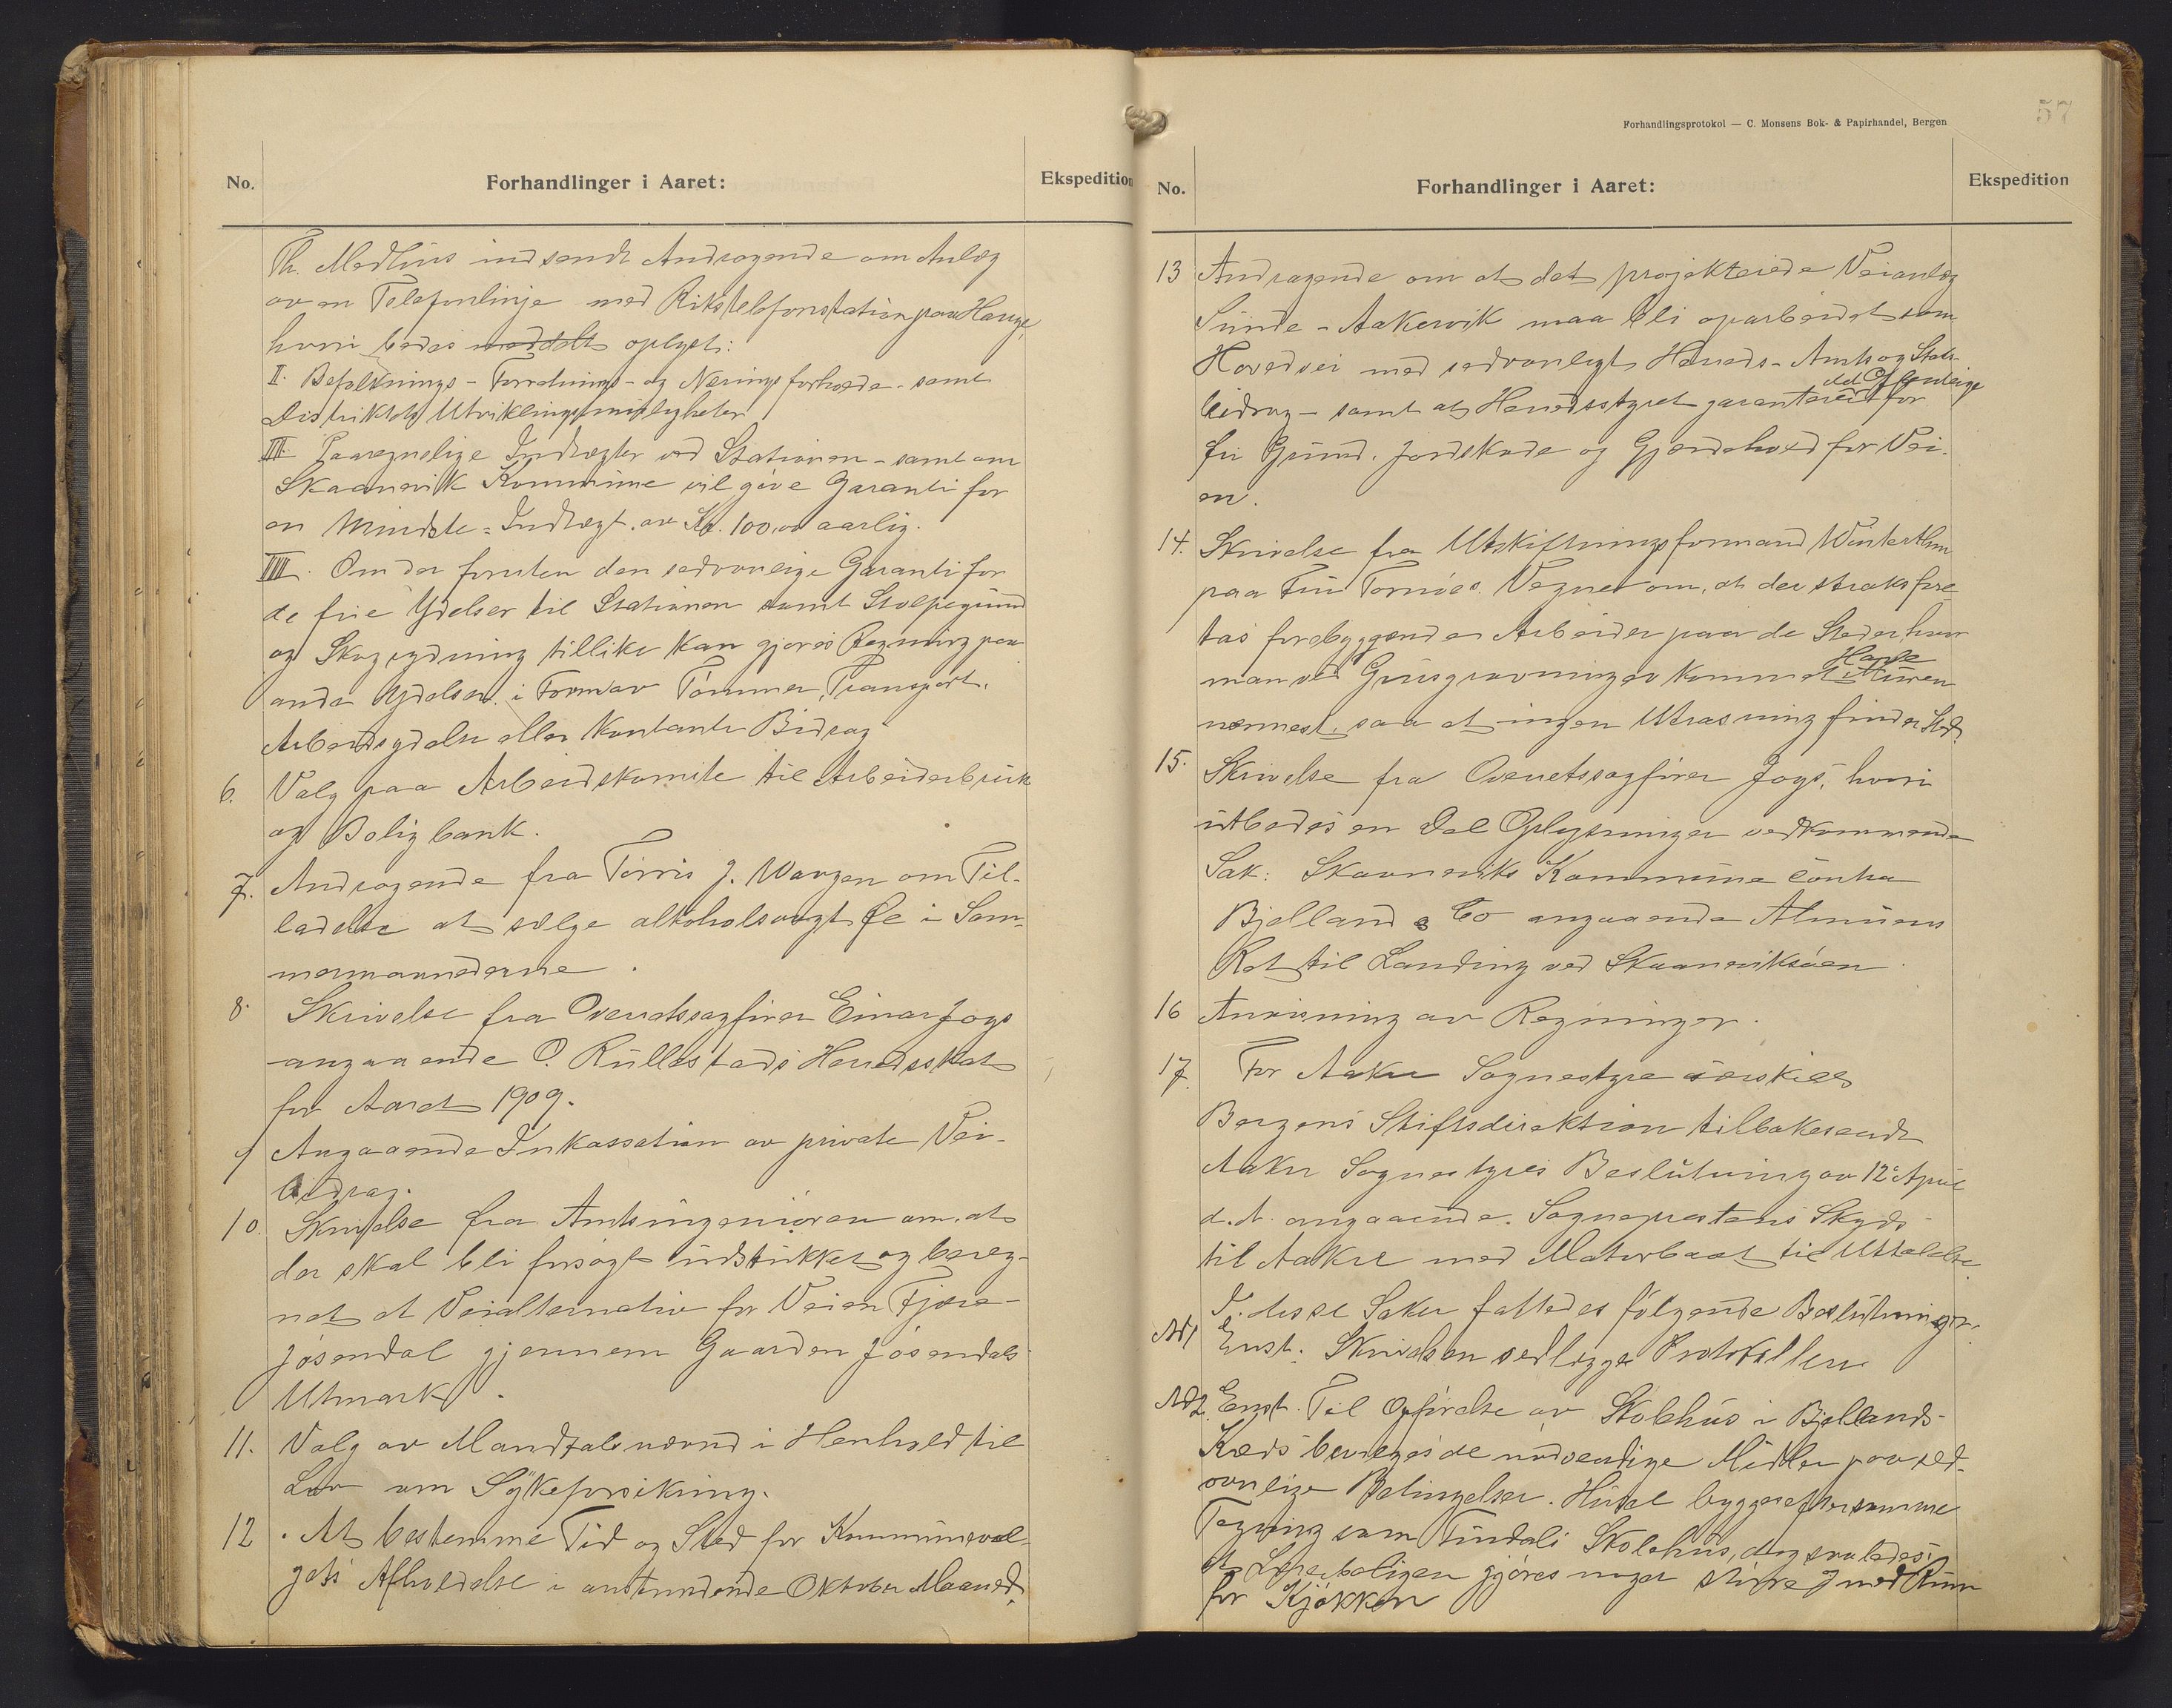 No.
Forhandlinger i Aaret:
Ekspedition
Th. Medhus indsendt Andragende om Anlæg
av en Telefonlinje med Rikstelefonstation paa Hauge,
hvori bedes meddelt oplyst:
II. Befolknings- Forretnings- og Næringsforholde - samt
Distriktets Utviklingsmuligheter
III. Paaregnelige Indtægter ved Stationen - samt om
Skaanevik Kommune vil give Garanti for
en Mindste-Indtægt av Kr. 100,00 aarlig.
IIII. Om der foruten den sedvanlige Garanti for
de frie Ydelser til Stationen samt Stolpegrund
og Skogrydning tillike kan gjøres Regning paa
andre Ydelser i Form av Tømmer, Transport,
Arbeidsydelse eller Kontante Bidrag
6. Valg paa Arbeidskomite til Arbeiderbruk
og Boligbank.
7. Andragende fra Tørris J. Wangen om Til-
ladelse at sælge alkoholsvagt Øl i Som-
mermaanederne.
8. Skrivelse fra Overretssagfører Einar Joys
angaaende O. Rullestads Herredsskat
for Aaret 1909.
9 Angaaende Inkassation av private Vei-
bidrag.
10. Skrivelse fra Amtsingeniøren om, at
der skal bli forsøgt utstukket og bereg-
net et Veialternativ for Veien Fjære-
Jøsendal gjennem Gaarden Jøsendals
Utmark.
11. Valg av Mandtalsnævnd i Henhold til
Lov om Sykeforsikring.
12. At bestemme Tid og Sted for Kommuneval-
gets Afholdelse i anstundende Oktober Maaned.
Forhandlingsprotokol — C. Monsens Bok- & Papirhandel, Bergen
57
No.
Forhandlinger i Aaret:
Ekspedition
13 Andragende om at det projekterede Veianlæg
Sunde - Aakervik maa bli oparbeidet som
Hovedvei med sedvanligt Herreds- Amts og Stats-
bidrag - samt at Herredsstyret garanterer det Offentlige for
fri Grund, Jordskade og Gjerdehold for Vei-
en.
14. Skrivelse fra Utskiftningsformand Winterthun
paa Fru Tornøes Vegne om, at der straks fore-
tas forebyggende Arbeider paa de Steder hvor
man ved Grusgravninger kommer Have Muren
nærmest, saa at ingen Utrasning finder Sted.
15. Skrivelse fra Overretssagfører Joys, hvori
utbedes en Del Oplysninger vedkommende
Sak: Skaaneviks Kommune contra
Bjelland & Co angaaende Almuens
Ret til Landing ved Skaaneviksøen.
16 Anvisning av Regninger.
17. For Aakre Sognestyre særskilt
Bergens Stiftsdirektion tilbakesendt
Aakre Sognestyres Beslutning av 12te April
d. A. angaaende Sogneprestens Skyds
til Aakre med Motorbaat til Uttalelse.
I disse Saker fattedes følgende Beslutninger:
Ad 1 Enst: Skrivelsen vedlægges Protokollen
Ad 2. Enst. Til Opførelse av Skolehus i Bjellands
Kreds bevilges de nødvendige Midler paa sed-
vanlige Betingelser. Huset bygges efter samme
Tegning som Tindals Skolehus, dog saaledes,
at Lærerboligen gjøres noget større med Rum
for Kjøkken